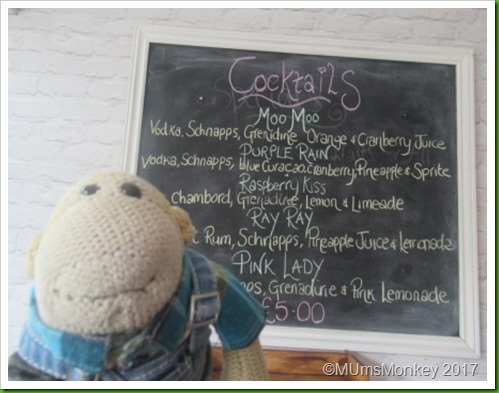 Cocktails
Moo Moo
Vodka, Schnapps, Grenidine Orange & Cranberry Juice
PURPLE RAIN
Vodka, Schnapps, blue Curaçao, Cranberry, Pineapple & Sprite
Raspberry Kiss
Chambord, Grenadine, Lemon & Limeade
RAY RAY
Rum, Schnapps, Pineapple Juice & Lemonade
PINK LADY
Grenadine & Pink Lemonade
£5.00
©MUmsMonkey 2017